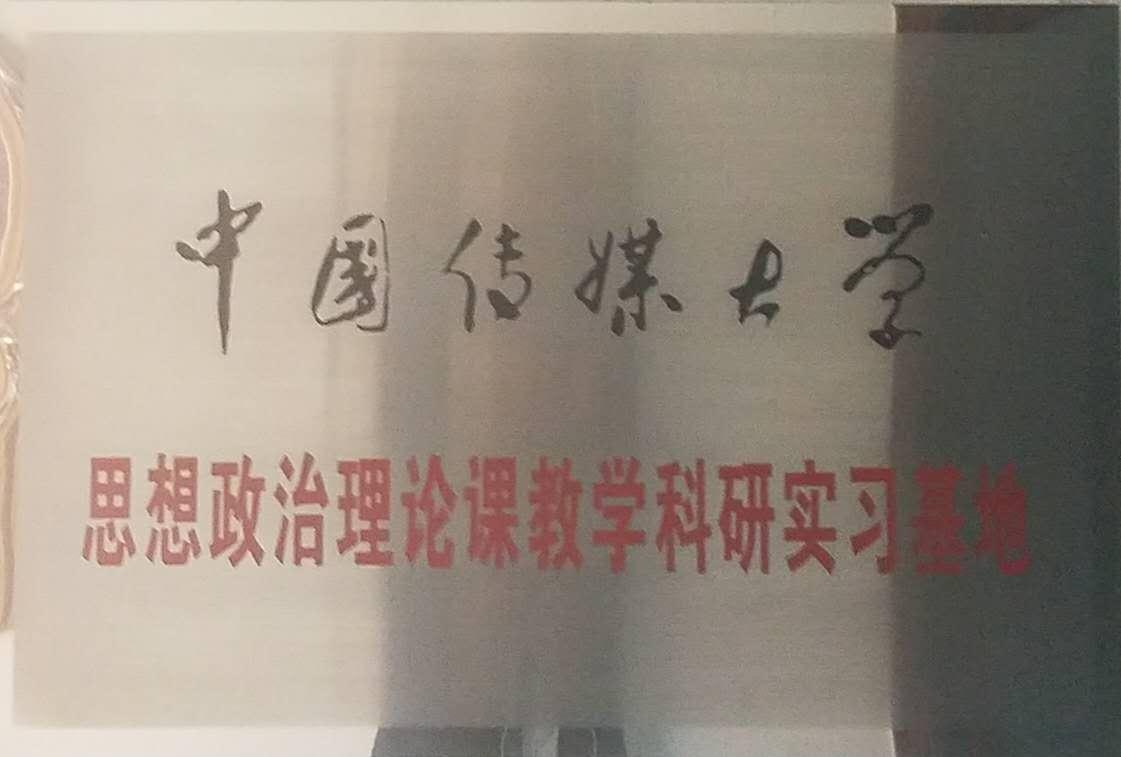 中国传媒大学
思想政治理论课教学科研实习基地